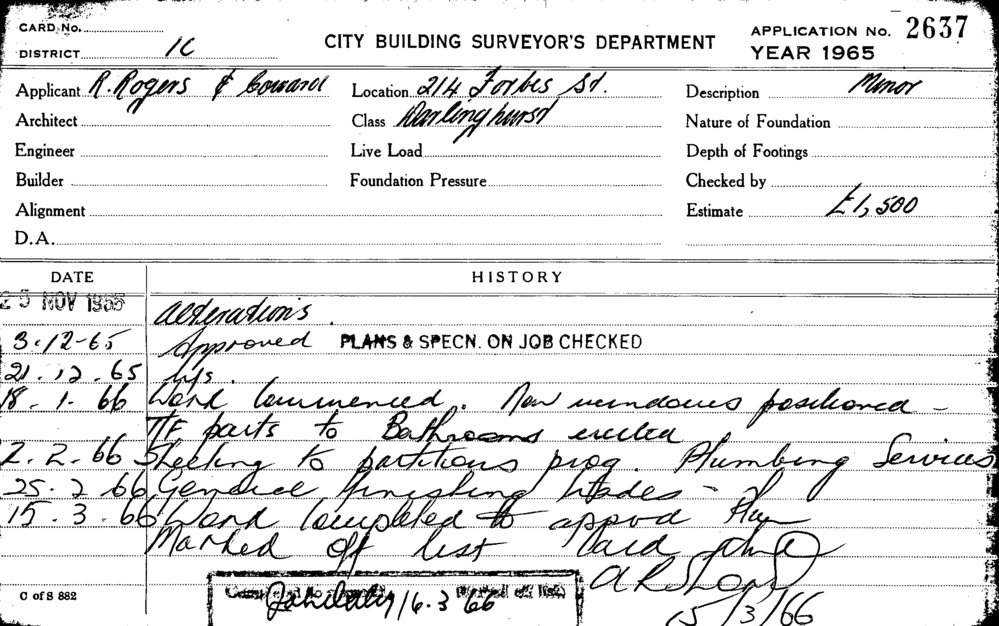 CARD No.
DISTRICT 1C
CITY BUILDING SURVEYOR'S DEPARTMENT
APPLICATION No. 2637
YEAR 1965
Applicant R. Rogers & Coward
Location 214 Forbes St.
Description Minor
Architect
Class Darlinghurst
Nature of Foundation
Engineer
Live Load
Depth of Footings
Builder
Foundation Pressure
Checked by
Alignment
Estimate £1,500
D.A.
DATE HISTORY
25 NOV 1965 alterations.
3.12-65 Approved PLANS & SPECN. ON JOB CHECKED
21.12.65
18.1.66 Work Commenced. New windows positioned -
TF parts to Bathrooms erected
2.2.66 Sheeting to partitions prog. Plumbing Services
25.2.66 General finishing trades -
15.3.66 Work Completed to approd Plan
Marked off list
15/3/66
16.3.66
C of S 882